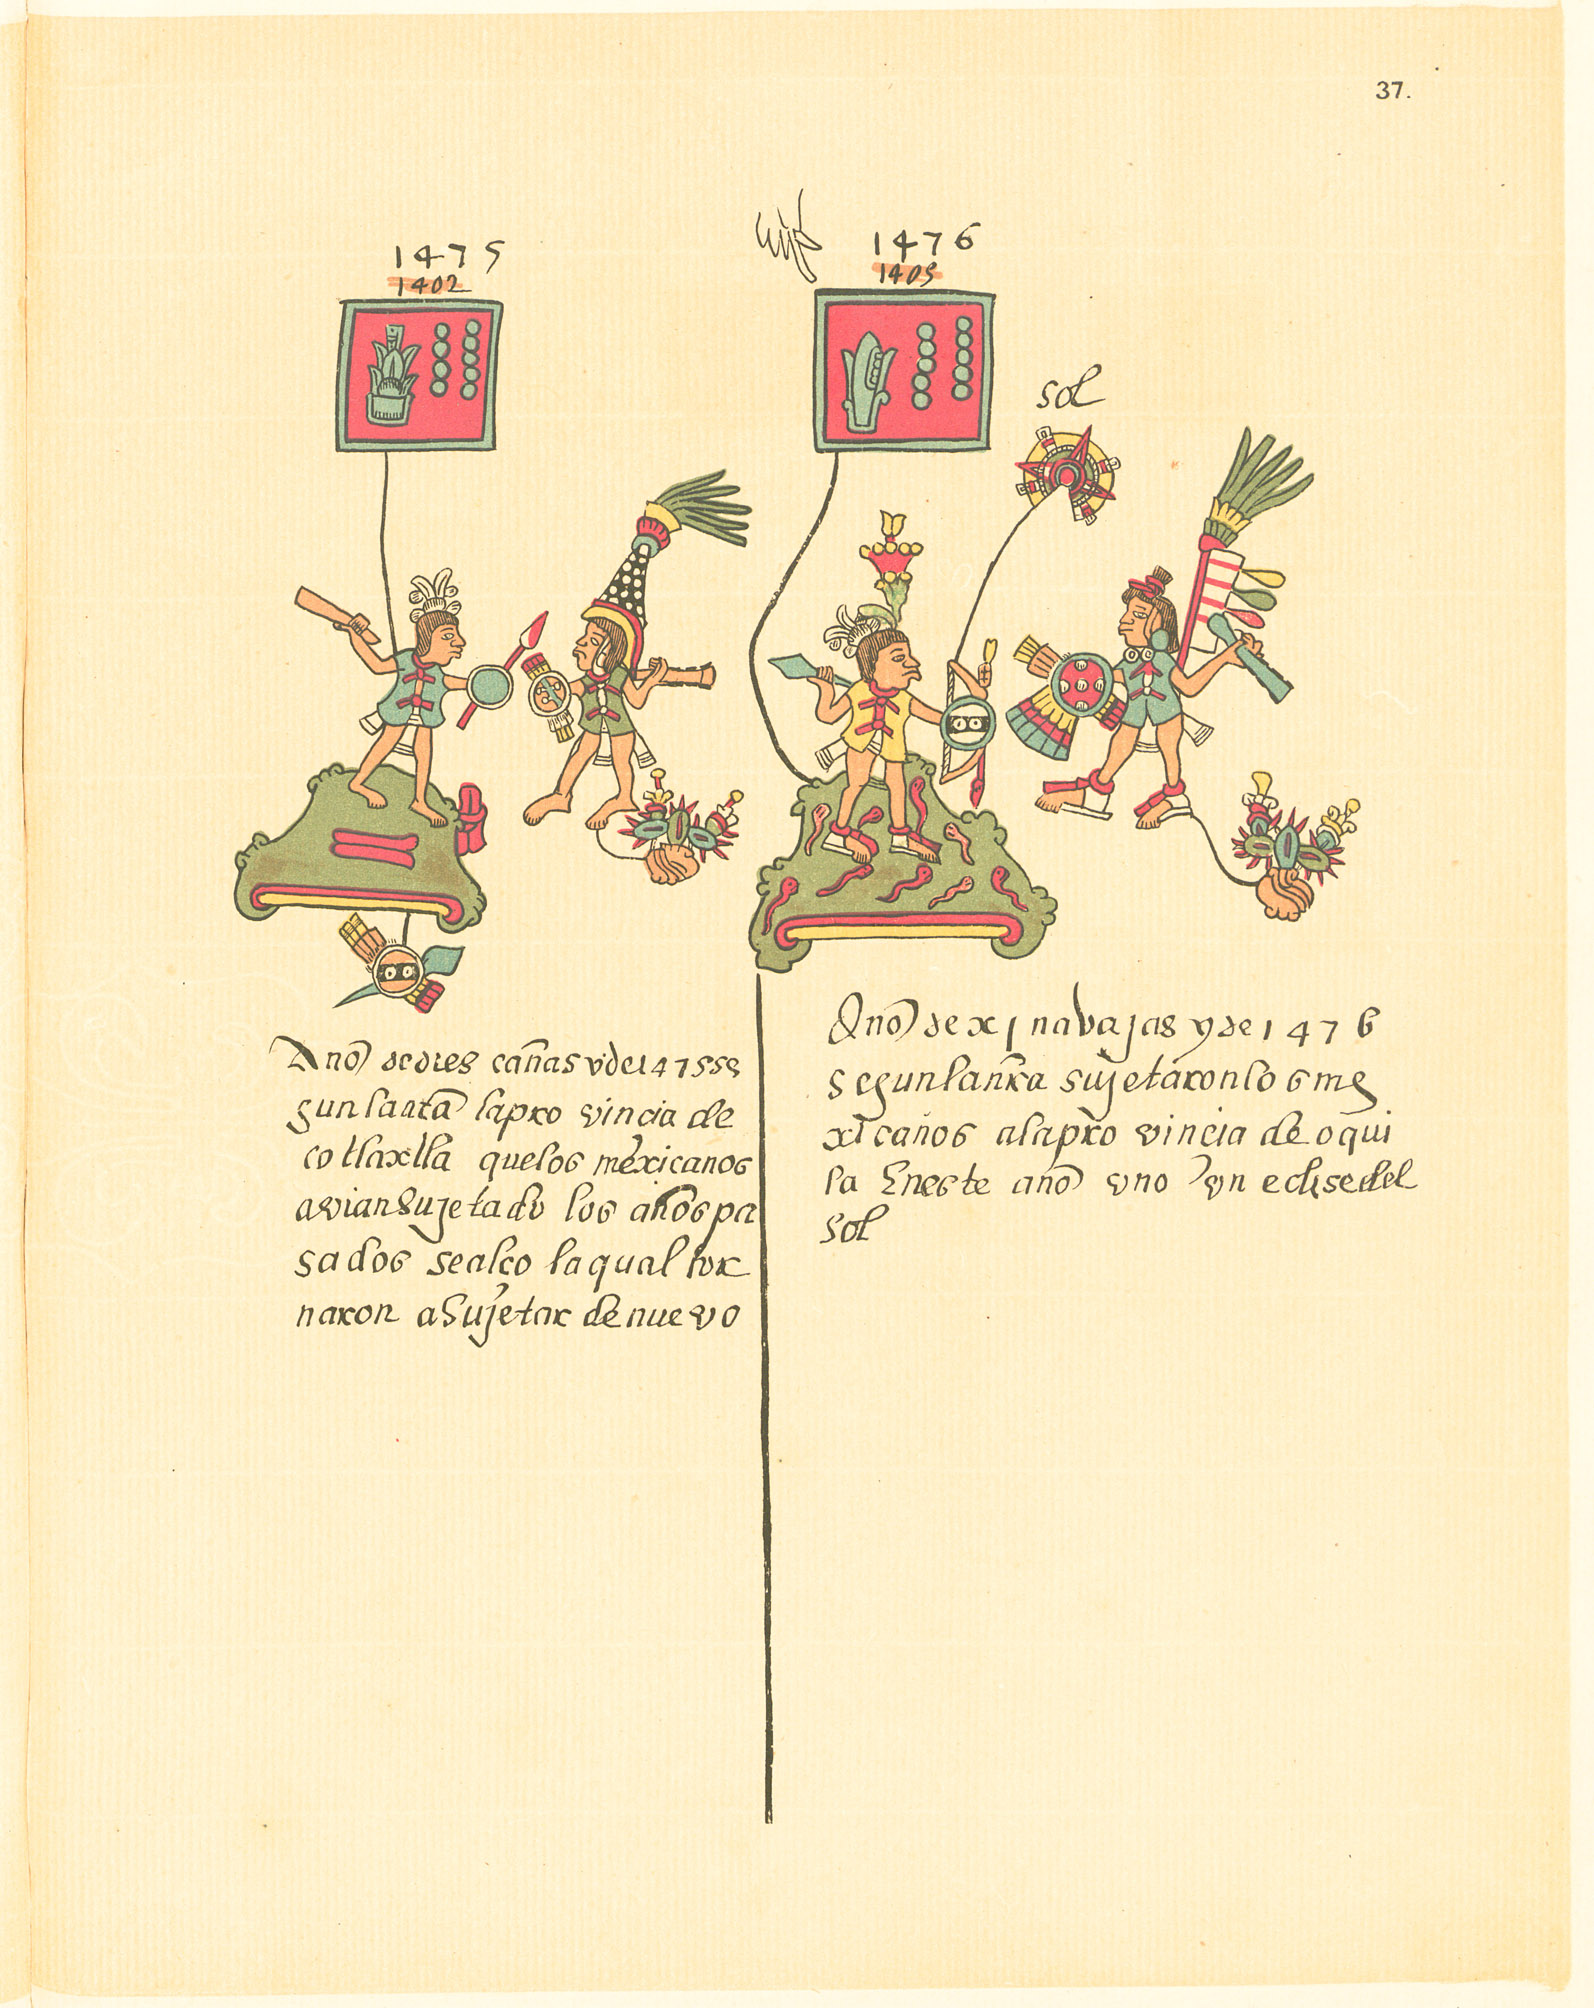 37.
1475
1402
1476
1405
sol
Año de dies cañas y de 1475 se
gun la nrã la pro vincia de
cotlaxtla que los mexicanos
avian sujetado los años pa
sados se alço la qual tor
naron a sujetar de nuevo
Año de xj navajas y de 1476
segun la nrã sujetaron los me
xicanos a la pro vincia de oqui
la En este año uno un eclise del
sol